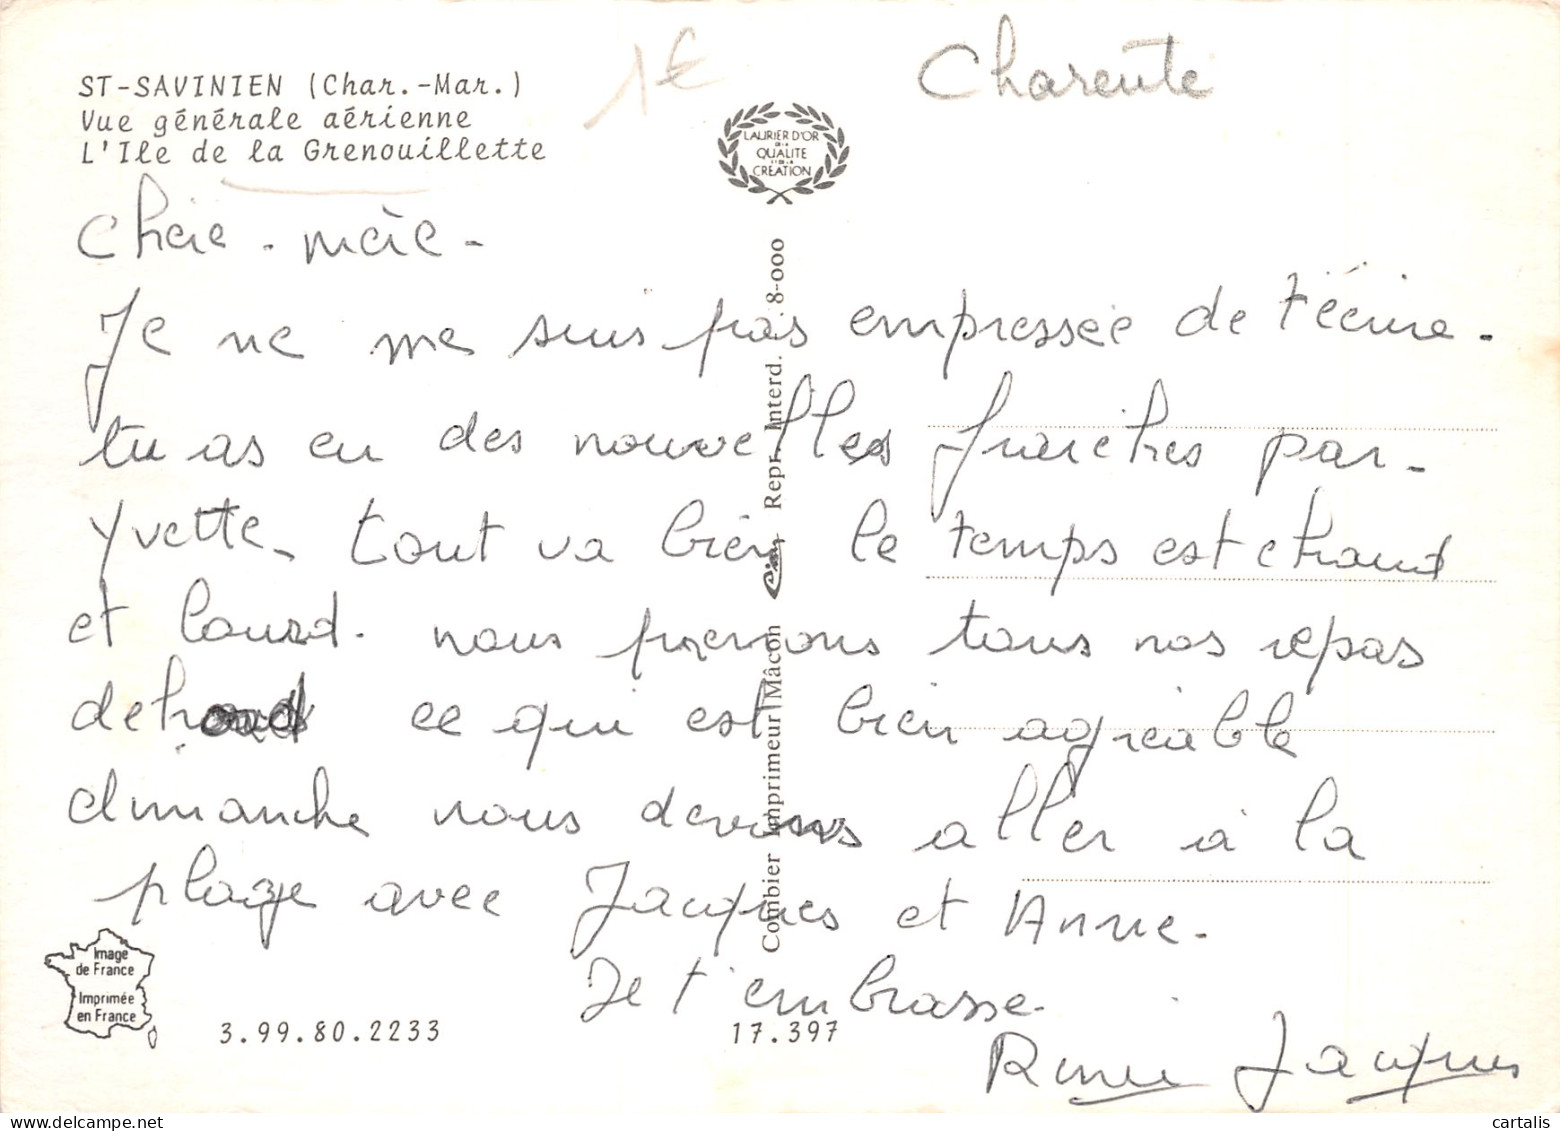 ST-SAVINIEN (Char.-Mar.)
Vue générale aérienne
L'Ile de la Grenouillette
1€
Charente
LAURIER D'OR
DE LA
QUALITE
ET DE LA
CREATION
Chère - mère -
Je ne me suis pas empressée de t'écrire.
tu as eu des nouvelles fraîches par -
Yvette. tout va bien le temps est chaud
et lourd. nous prenons tous nos repas
dehors ce qui est bien agréable
dimanche nous devons aller à la
plage avec Jacques et Anne.
Je t'embrasse.
Renée Jacques
Combier Imprimeur Mâcon Cim Repr. Interd. 8-000
Image
de France
Imprimée
en France
3.99.80.2233
17.397
cartalis